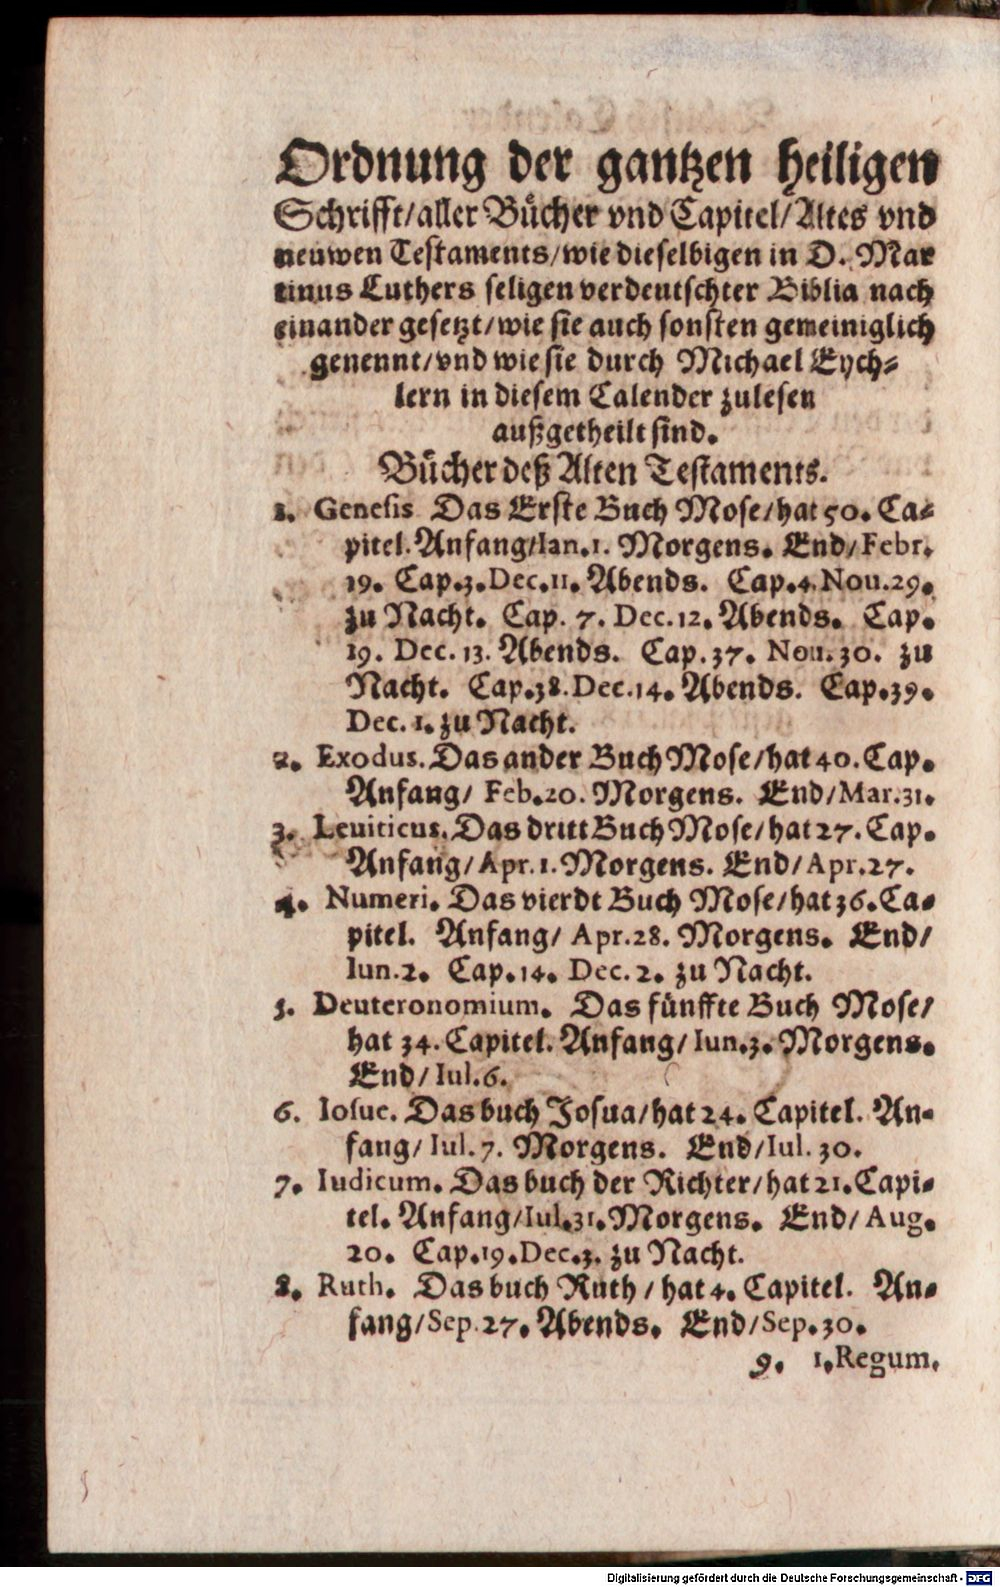 Ordnung der gantzen heiligen
Schrifft/aller Bücher vnd Capitel/Altes vnd
neuwen Testaments/wie dieselbigen in D. Mar
tinus Luthers seligen verdeutschter Biblia nach
einander gesetzt/wie sie auch sonsten gemeiniglich
genennt/vnd wie sie durch Michael Eych-
lern in diesem Calender zulesen
außgetheilt sind.
Bücher deß Alten Testaments.
1. Genesis Das Erste Buch Mose/hat 50. Ca-
pitel. Anfang/Ian.1. Morgens. End/Febr.
19. Cap.3.Dec.11. Abends. Cap.4.Nou.29.
zu Nacht. Cap. 7. Dec.12. Abends. Cap.
19. Dec. 13. Abends. Cap.37. Nou.30. zu
Nacht. Cap.38.Dec.14. Abends. Cap.39.
Dec. 1. zu Nacht.
2. Exodus. Das ander Buch Mose/hat 40. Cap.
Anfang/ Feb.20. Morgens. End/Mar.31.
3. Leuiticus. Das dritt Buch Mose/hat 27. Cap.
Anfang/Apr.1. Morgens. End/Apr.27.
4. Numeri. Das vierdt Buch Mose/hat 36. Ca-
pitel. Anfang/ Apr.28. Morgens. End/
Iun.2. Cap.14. Dec.2. zu Nacht.
5. Deuteronomium. Das fünffte Buch Mose/
hat 34. Capitel. Anfang/Iun.3. Morgens.
End/Iul.6.
6. Iosue. Das buch Josua/hat 24. Capitel. An-
fang/Iul.7. Morgens. End/Iul.30.
7. Iudicum. Das buch der Richter/hat 21. Capi-
tel. Anfang/Iul.31. Morgens. End/Aug.
20. Cap.19.Dec.3. zu Nacht.
8. Ruth. Das buch Ruth/hat 4. Capitel. An-
fang/Sep.27. Abends. End/Sep.30.
9. 1. Regum.
Digitalisierung gefördert durch die Deutsche Forschungsgemeinschaft - DFG